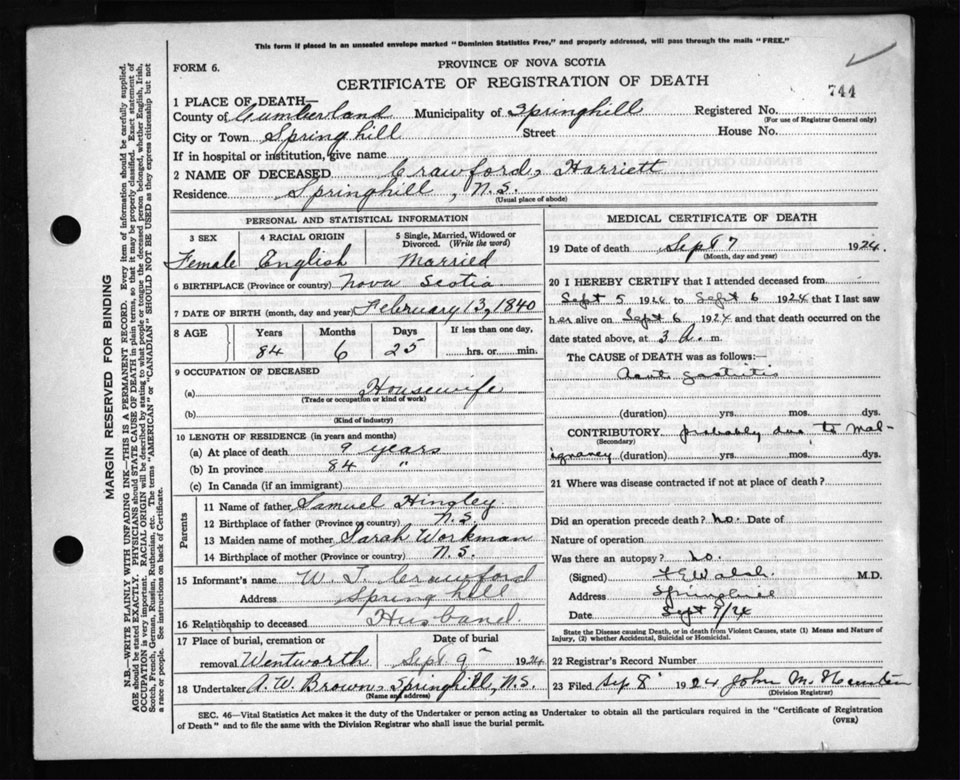 This form if placed in an unsealed envelope marked "Dominion Statistics Free," and properly addressed, will pass through the mails "FREE."
FORM 6.
PROVINCE OF NOVA SCOTIA
CERTIFICATE OF REGISTRATION OF DEATH
744
1 PLACE OF DEATH—
County of Cumberland Municipality of Springhill Registered No.
(For use of Registrar General only)
City or Town Springhill Street House No.
If in hospital or institution, give name
2 NAME OF DECEASED Crawford, Harriett
Residence Springhill, N.S.
(Usual place of abode)
PERSONAL AND STATISTICAL INFORMATION
3 SEX 4 RACIAL ORIGIN 5 Single, Married, Widowed or Divorced. (Write the word)
Female English Married
6 BIRTHPLACE (Province or country) Nova Scotia
7 DATE OF BIRTH (month, day and year) February 13, 1840
8 AGE Years Months Days If less than one day,
84 6 25 hrs. or min.
9 OCCUPATION OF DECEASED
(a) Housewife
(Trade or occupation or kind of work)
(b)
(Kind of industry)
10 LENGTH OF RESIDENCE (in years and months)
(a) At place of death 9 years
(b) In province 84 "
(c) In Canada (if an immigrant)
Parents
11 Name of father Samuel Hingley
12 Birthplace of father (Province or country) N.S.
13 Maiden name of mother Sarah Workman
14 Birthplace of mother (Province or country) N.S.
15 Informant's name W. T. Crawford
Address Springhill
16 Relationship to deceased Husband
17 Place of burial, cremation or Date of burial
removal Wentworth Sept 9th 1924
18 Undertaker A. W. Brown, Springhill, N.S.
(Name and address)
MEDICAL CERTIFICATE OF DEATH
19 Date of death Sept 7 1924.
(Month, day and year)
20 I HEREBY CERTIFY that I attended deceased from
Sept 5 1924 to Sept 6 1924 that I last saw
her alive on Sept 6 1924 and that death occurred on
date stated above, at 3 A. m.
The CAUSE of DEATH was as follows:—
Acute gastritis
(duration) yrs. mos. dys.
CONTRIBUTORY probably due to mal-
(Secondary)
ignancy (duration) yrs. mos. dys.
21 Where was disease contracted if not at place of death?
Did an operation precede death? No. Date of
Nature of operation
Was there an autopsy? No.
(Signed) F E Walsh M.D.
Address Springhill
Date Sept 9/24
State the Disease causing Death, or in death from Violent Causes, state (1) Means and Nature of
Injury, (2) whether Accidental, Suicidal or Homicidal.
22 Registrar's Record Number
23 Filed Sep 8 1924 John M.
(Division Registrar)
SEC. 46—Vital Statistics Act makes it the duty of the Undertaker or person acting as Undertaker to obtain all the particulars required in the "Certificate of Registration
of Death" and to file the same with the Division Registrar who shall issue the burial permit.
(OVER)
MARGIN RESERVED FOR BINDING
N.B.—WRITE PLAINLY WITH UNFADING INK—THIS IS A PERMANENT RECORD. Every item of information should be carefully supplied.
AGE should be stated EXACTLY. PHYSICIANS should STATE CAUSE OF DEATH in plain terms, so that it may be properly classified. Exact statement of
OCCUPATION is very important. RACIAL ORIGIN will be described by stating to what people or tongue the deceased person belonged, whether English, Irish,
Scotch, French, German, Russian, Ruthenian, etc. The terms "AMERICAN" or "CANADIAN" SHOULD NOT BE USED as they express citizenship but not
a race or people. See instructions on back of Certificate.